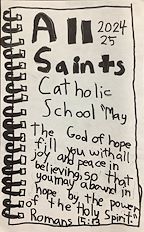 All 2024
25
Saints
Catholic
School "May
the God of hope
fill you with all
joy and peace in
believing, so that
you may abound in
hope by the power
of the Holy Spirit."
Romans 15:13